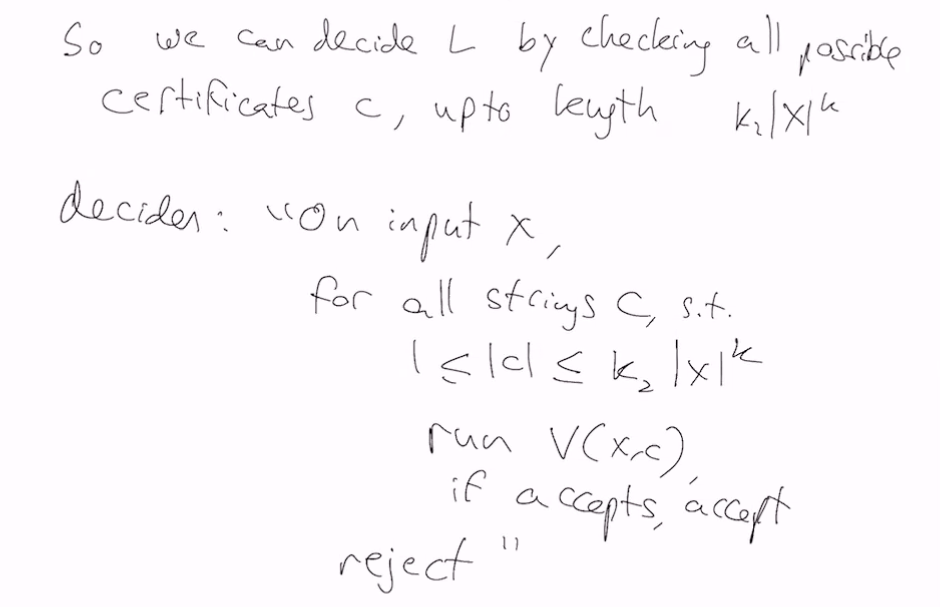 So we can decide L by checking all possible
certificates c, upto length k₂|x|ᵏ
decider: "On input x,
for all strings C, s.t.
1 ≤ |c| ≤ k₂ |x|ᵏ
run V(x,c),
if accepts, accept
reject"